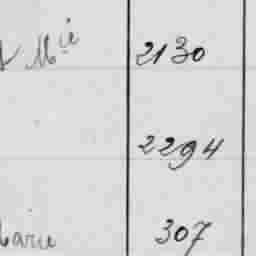 & M^ie 2130
2294
Marie 307